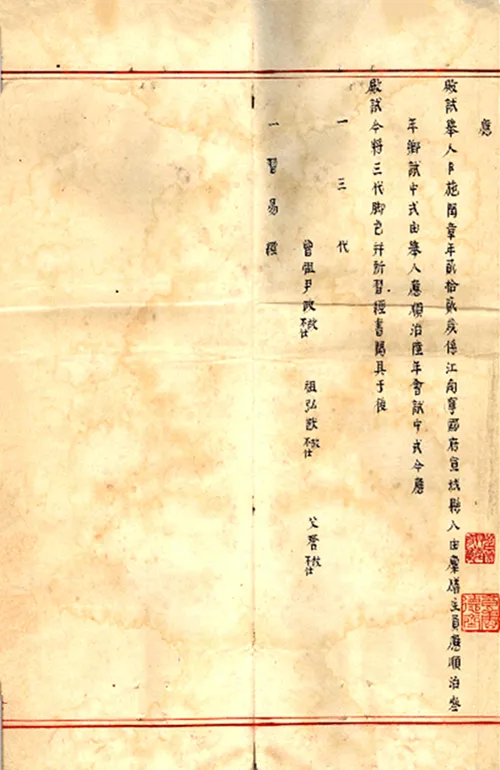 應
殿試舉人臣施閏章年貳拾貳歲係江南寧國府宣城縣人由廩膳生員應順治叁
年鄉試中式由舉人應順治陸年會試中式今應
殿試今將三代脚色并所習經書開具于後
一三代
曾祖尹政故不仕 祖弘猷故不仕 父詧故不仕
一習易經